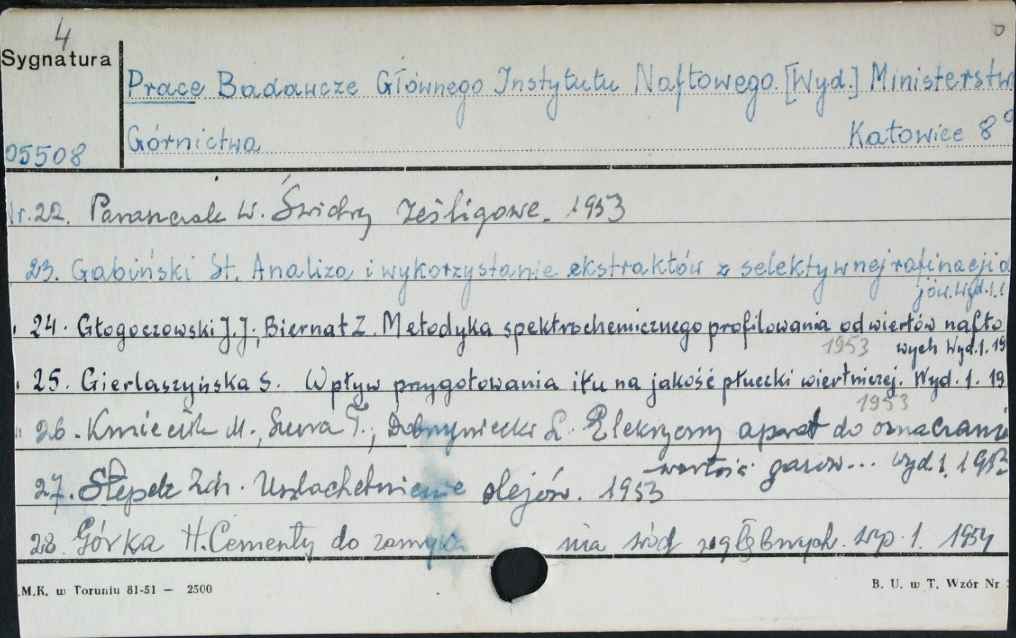 4
Sygnatura
Prace Badawcze Głównego Instytutu Naftowego. [Wyd.] Ministerstw
Górnictwa Katowice 8°
05508
Nr. 22. Paraszczak W. Świdry ześligowe. 1953
23. Gabiński St. Analiza i wykorzystanie ekstraktów z selektywnej rafinacji o
jów. Wyd. 1. 1
24. Głogoczowski J.J.; Biernat Z. Metodyka spektrochemicznego profilowania odwiertów nafto
1953 wych Wyd. 1. 19
25. Gierlaszyńska S. Wpływ przygotowania iłu na jakość płuczki wiertniczej. Wyd. 1. 19
1953
26. Kmiecik M., T., L. Elektryczny aparat do oznaczani
wartości gazow... wyd. 1. 1953
27. Zdz. Uszlachetnienie olejów. 1953
28. Górka H. Cementy do zamyka nia wód wgłębnych. wyp. 1. 1954
M.K. w Toruniu 81-51 — 2500
B. U. w T. Wzór Nr